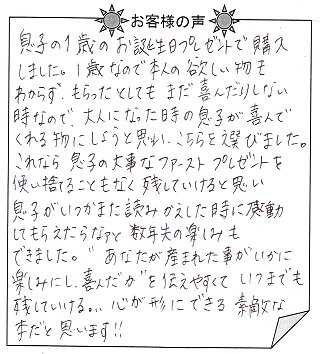 お客様の声
息子の1歳のお誕生日プレゼントで購入
しました。1歳なので本人の欲しい物も
わからず、もらったとしてもまだ喜んだりしない
時なので、大人になった時の息子が喜んで
くれる物にしようと思い、こちらを選びました。
これなら息子の大事なファーストプレゼントを
使い捨てることもなく残していけると思い
息子がいつかまた読みかえした時に感動
してもらえたらなァと数年先の楽しみも
できました。"あなたが産まれた事がいかに
楽しみにし、喜んだか"を伝えやすくていつまでも
残していける… 心が形にできる素敵な
本だと思います!!